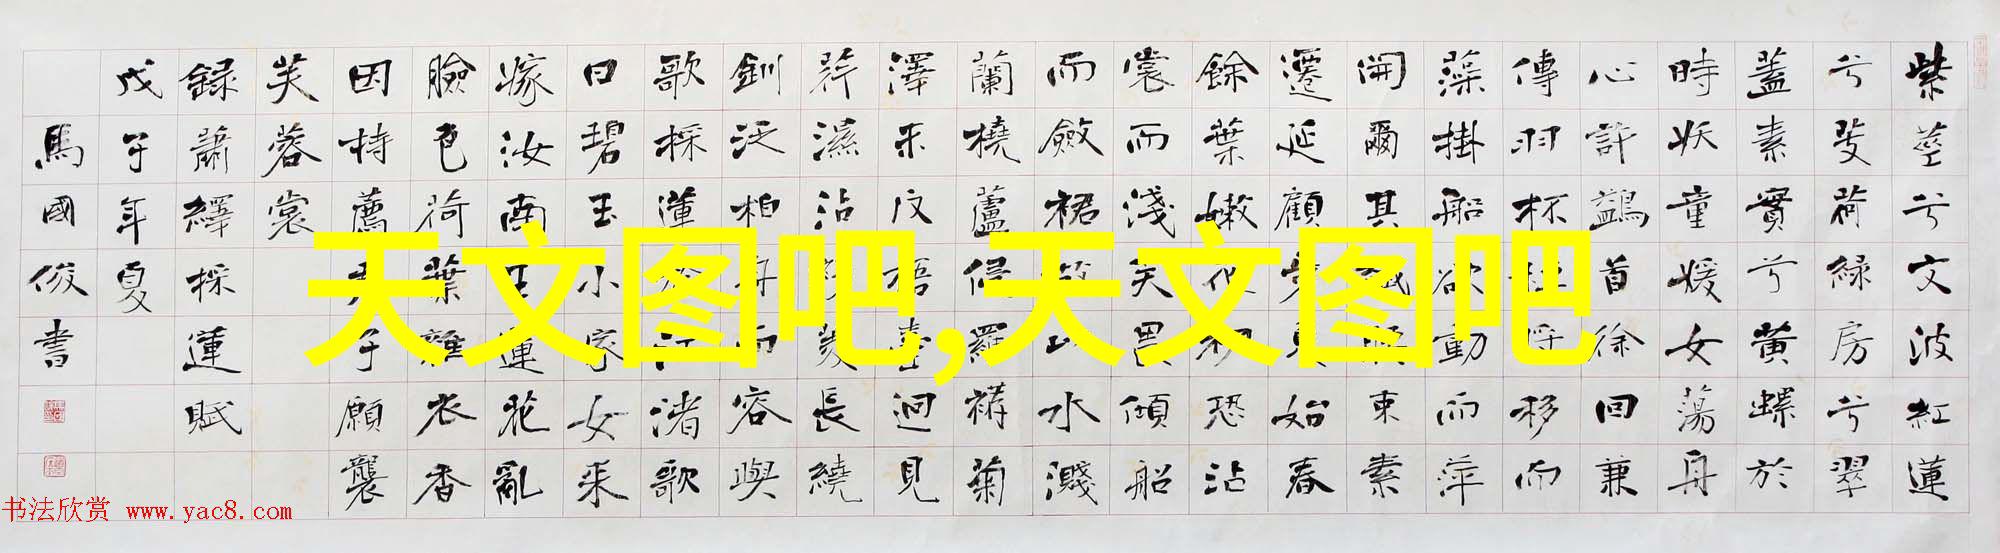 紫莖兮文波紅蓮
兮芰荷綠房兮翠
蓋素實兮黃螺於
時妖童媛女蕩舟
心許鷁首徐回兼
傳羽杯櫂將移而
藻掛船欲動而萍
開爾其纖腰束素
遷延顧始春
餘葉嫩花初恐沾
裳而淺笑畏傾船
而斂裾以水濺
蘭橈蘆侵羅菊
澤未反梧臺迥見
荇濕沾衫菱長繞
釧泛柏舟而容與
歌採蓮於江渚歌
曰碧玉小家女來
嫁汝南王蓮花亂
臉色荷葉雜衣香
因持薦君子願襲
芙蓉裳
錄蕭繹採蓮賦
戊子年夏
馬國俊書
天文图吧,天文图吧
书法欣赏 www.yac8.com